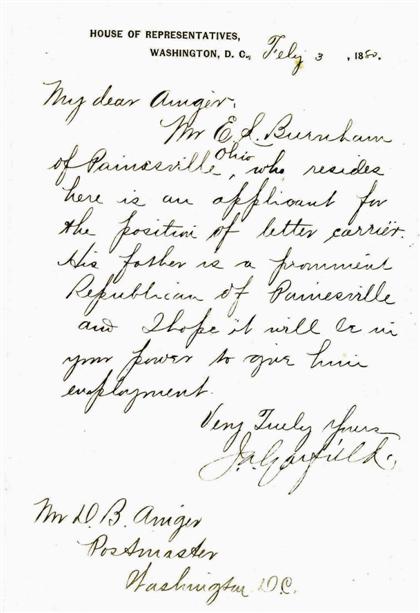 HOUSE OF REPRESENTATIVES,
WASHINGTON, D. C., Feby 3, 1880.
My dear Ainger,
Mr E. S. Burnham
of Painesville Ohio, who resides
here is an applicant for
the position of letter carrier.
His father is a prominent
Republican of Painesville
and I hope it will be in
your power to give him
employment.
Very Truly Yours
J. A. Garfield.
Mr D. B. Ainger
Postmaster
Washington D.C.